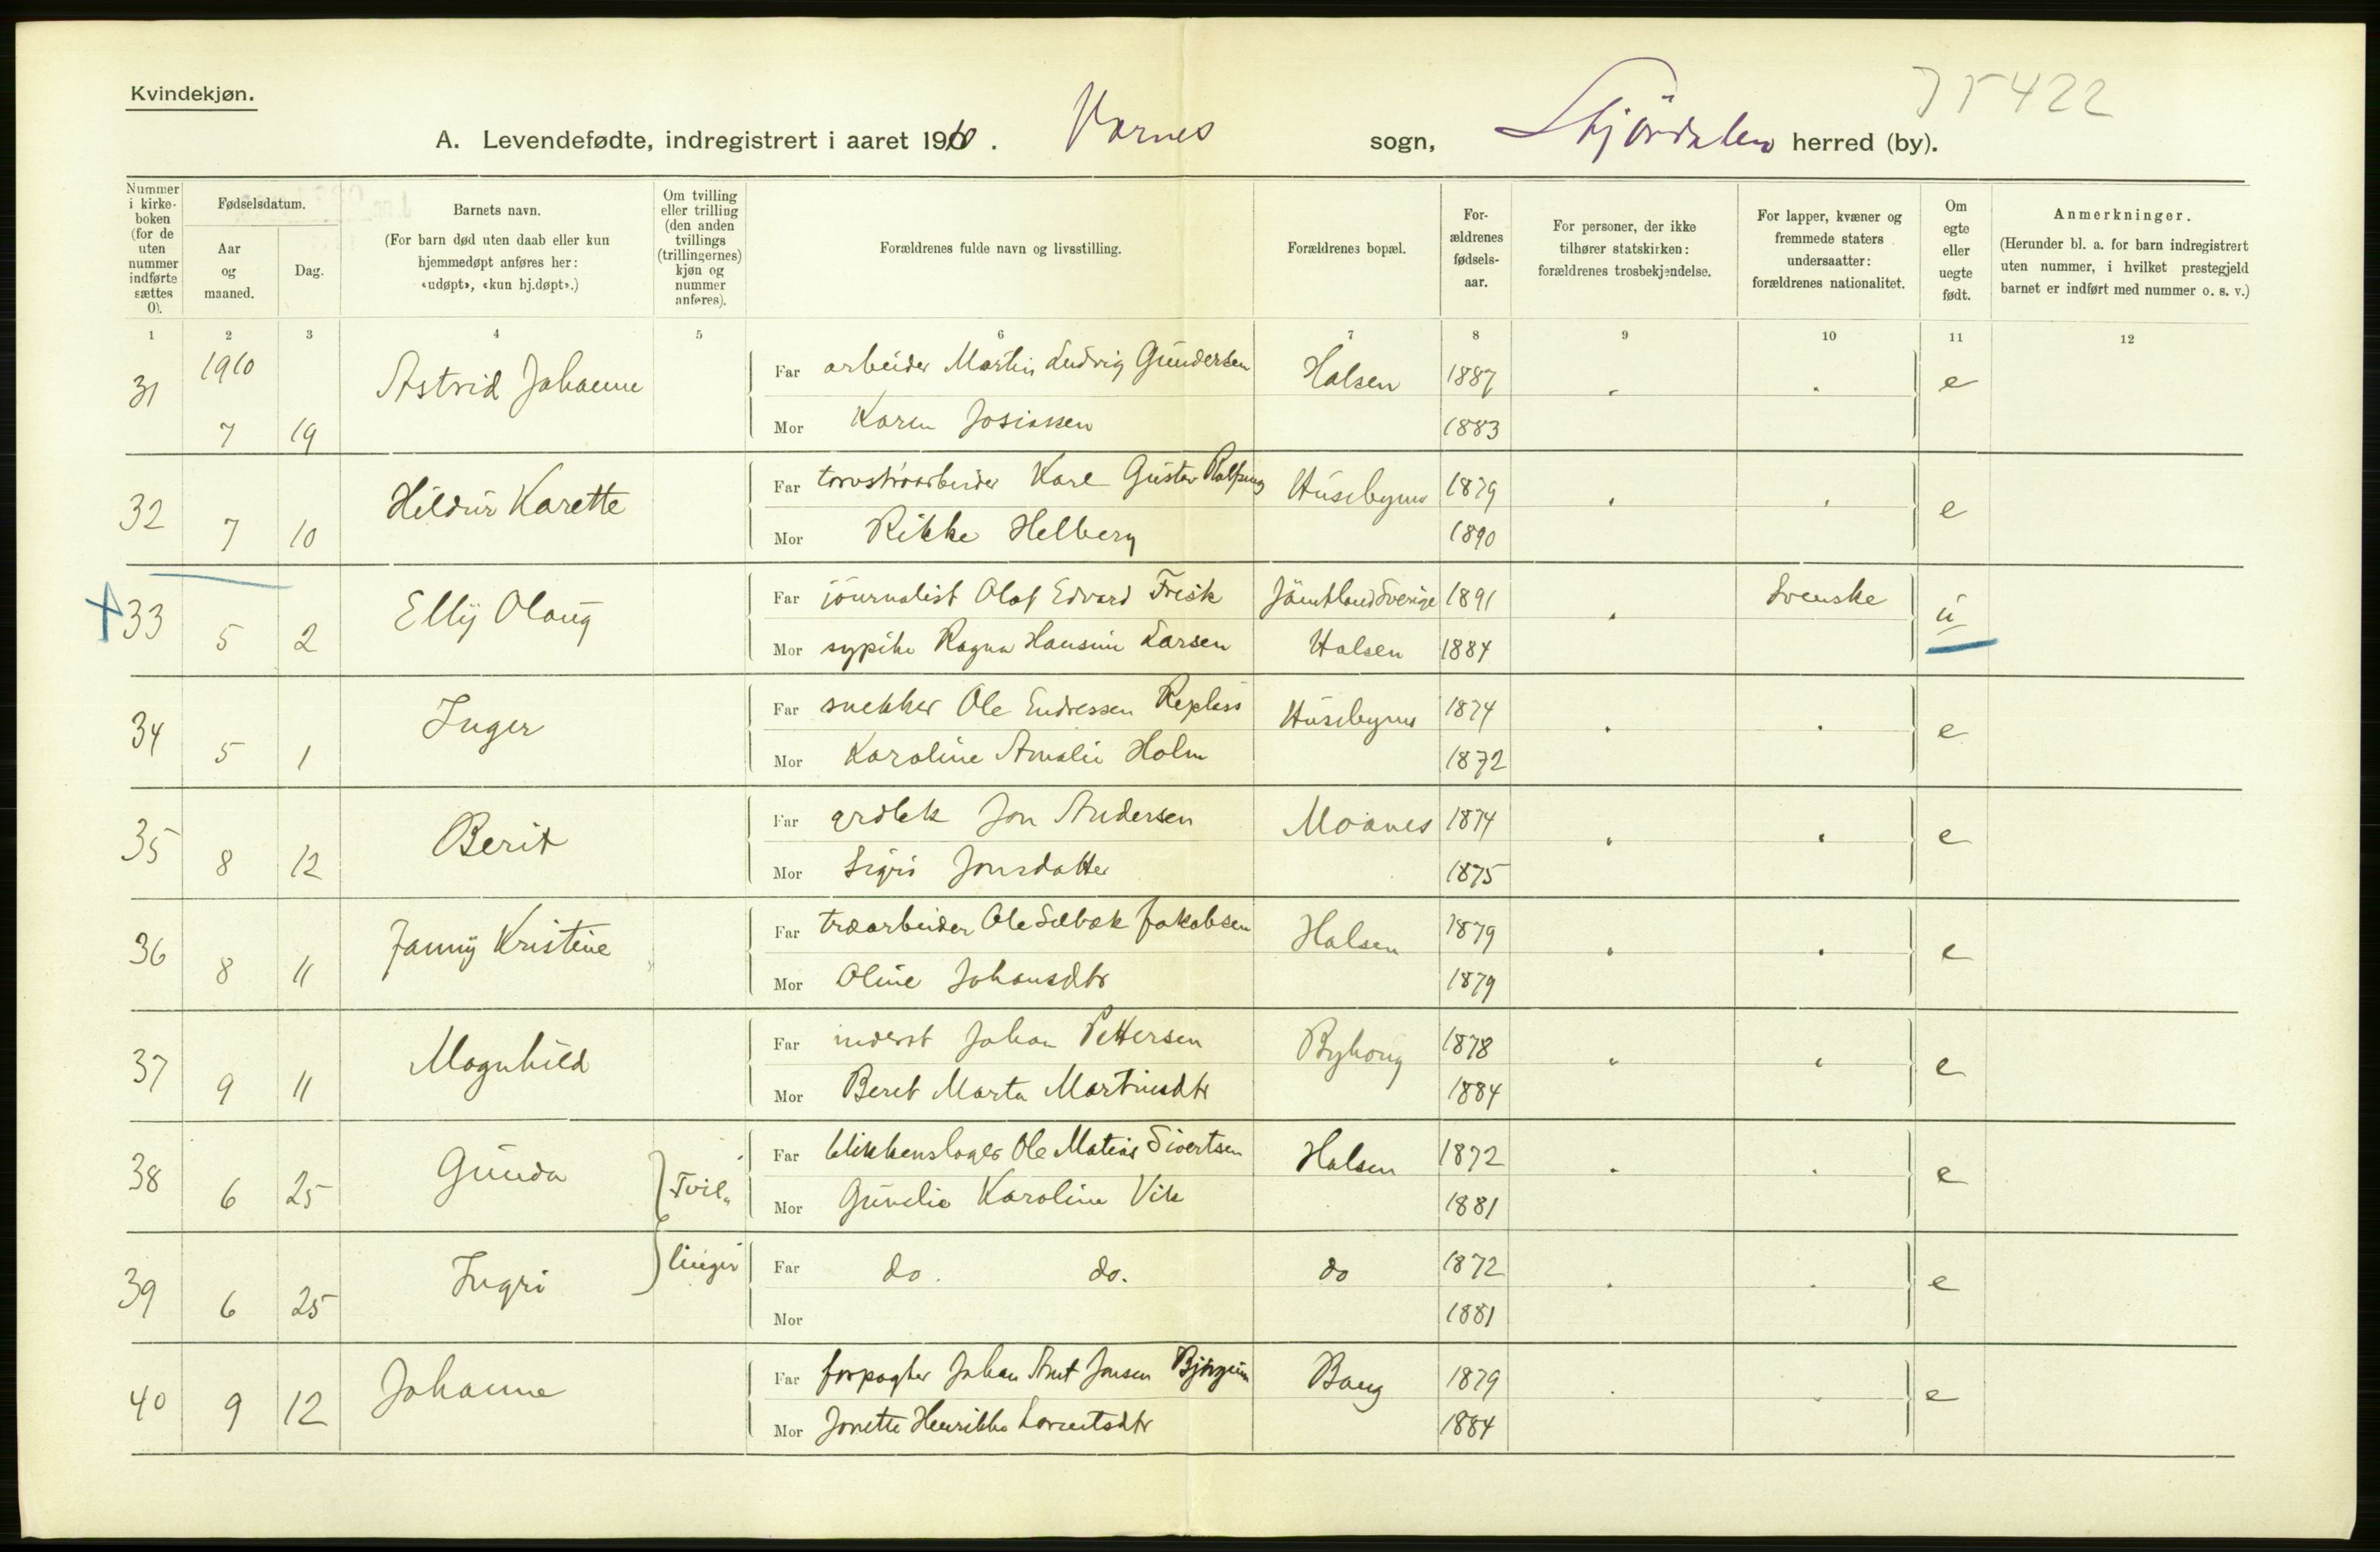 Kvindekjøn.
75422
A. Levendefødte, indregistrert i aaret 1910. Værnes sogn, Stjördalen herred (by).
Nummer i kirkeboken (for de uten nummer indførte sættes 0).
Fødselsdatum.
Aar og maaned.
Dag.
Barnets navn.
(For barn død uten daab eller kun hjemmedøpt anføres her: «udøpt», «kun hj.døpt».)
Om tvilling eller trilling (den anden tvillings (trillingernes) kjøn og nummer anføres).
Forældrenes fulde navn og livsstilling.
Forældrenes bopæl.
Forældrenes fødselsaar.
For personer, der ikke tilhører statskirken: forældrenes trosbekjendelse.
For lapper, kvæner og fremmede staters undersaatter: forældrenes nationalitet.
Om egte eller uegte født.
Anmerkninger.
(Herunder bl. a. for barn indregistrert uten nummer, i hvilket prestegjeld barnet er indført med nummer o. s. v.)
1 2 3 4 5 6 7 8 9 10 11 12
31 1910 7 19 Astrid Johanne Far arbeider Martin Ludvig Gundersen Halsen 1887 e
Mor Karen Josiassen 1883
32 7 10 Hildur Karette Far torvstrøarbeider Karl Gustav Husebymo 1879 e
Mor Rikke Helberg 1890
33 5 2 Elly Olaug Far journalist Olof Edvard Frisk Jämtland Sverige 1891 Svenske u
Mor sypike Ragna Hansine Larsen Halsen 1884
34 5 1 Inger Far snekker Ole Endressen Husebymo 1874 e
Mor Karoline Amalie Holm 1872
35 8 12 Berit Far Jon Andersen Moanes 1874 e
Mor Sigri Jonsdatter 1875
36 8 11 Fanny Kristine Far træarbeider Ole Selbæk Jakobsen Halsen 1879 e
Mor Oline Johansdtr 1879
37 9 11 Magnhild Far inderst Johan Pettersen Byhaug 1878 e
Mor Beret Marta Martinsdtr 1884
38 6 25 Gunda Tvil- Far blikkenslager Ole Matias Sivertsen Halsen 1872 e
Mor Gunelie Karoline Vik 1881
39 6 25 Ingri linger Far do. do. do 1872 e
Mor 1881
40 9 12 Johanne Far forpagter Johan Arnt Jonsen Bjørgum Baug 1879 e
Mor Jonette Henrikke Lorentsdtr 1884